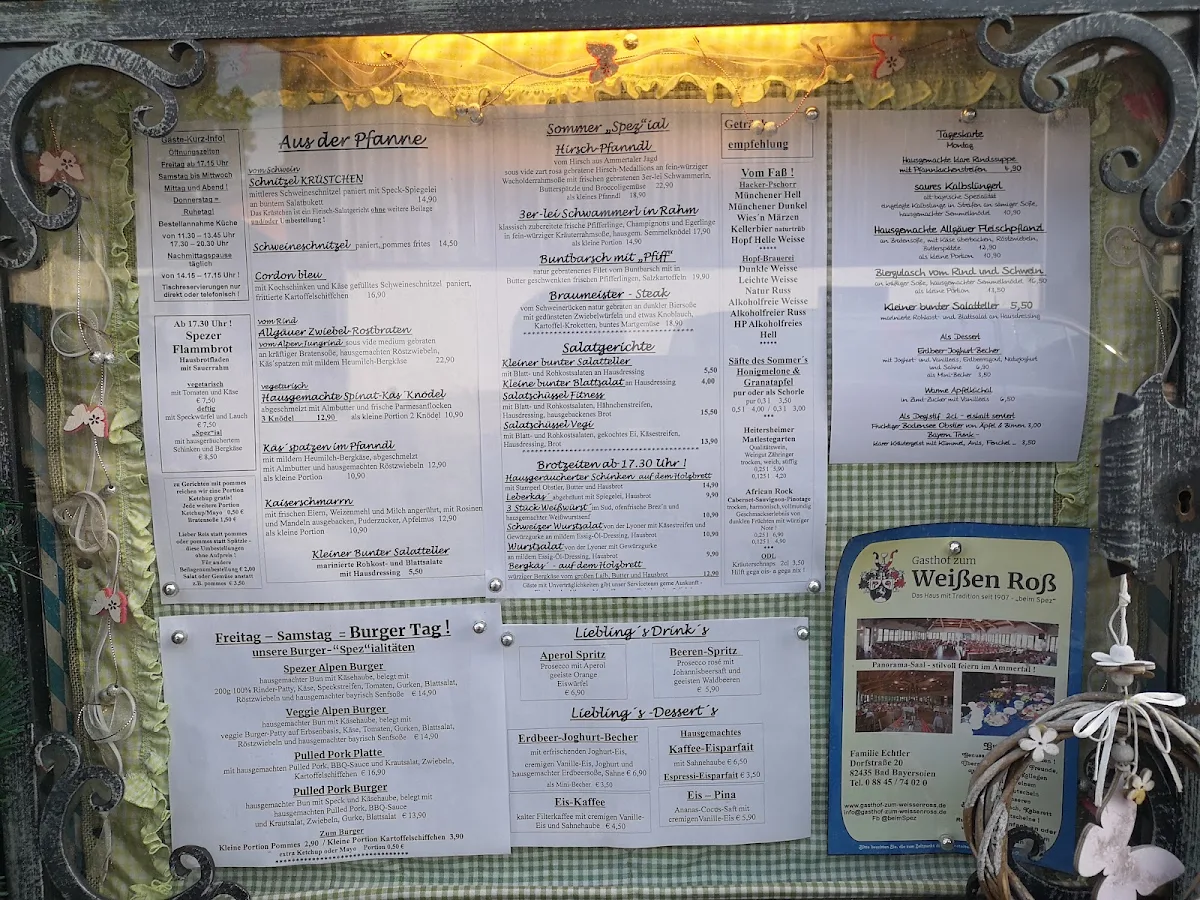 Gäste-Kurz-Info!
Öffnungszeiten
Freitag ab 17.15 Uhr
Samstag bis Mittwoch
Mittag und Abend !
Donnerstag =
Ruhetag!
Bestellannahme Küche
von 11.30 – 13.45 Uhr
17.30 – 20.30 Uhr
Nachmittagspause
täglich
von 14.15 – 17.15 Uhr !
Tischreservierungen nur
direkt oder telefonisch !
Ab 17.30 Uhr !
Spezer
Flammbrot
Hausbrotfladen
mit Sauerrahm
vegetarisch
mit Tomaten und Käse
€ 7,50
deftig
mit Speckwürfel und Lauch
€ 7,50
„Spez"ial
mit hausgeräuchertem
Schinken und Bergkäse
€ 8,50
zu Gerichten mit pommes
reichen wir eine Portion
Ketchup gratis!
Jede weitere Portion
Ketchup/Mayo 0,50 €
Bratensoße 1,50 €
Lieber Reis statt pommes
oder pommes statt Spätzle -
diese Umbestellungen
ohne Aufpreis !
Für andere
Beilagenumbestellung € 2,00
Salat oder Gemüse anstatt
z.B. pommes € 2,50
Aus der Pfanne
vom Schwein
Schnitzel KRÜSTCHEN
mittleres Schweineschnitzel paniert mit Speck-Spiegelei
an buntem Salatbukett 14,90
Das Krüstchen ist ein Fleisch-Salatgericht ohne weitere Beilage
und/oder Umbestellung !
Schweineschnitzel paniert, pommes frites 14,50
Cordon bleu
mit Kochschinken und Käse gefülltes Schweineschnitzel paniert,
frittierte Kartoffelschiffchen 16,90
vom Rind
Allgäuer Zwiebel-Rostbraten
vom Alpen-Jungrind sous vide medium gebraten
an kräftiger Bratensoße, hausgemachten Röstzwiebeln,
Käs'spatzen mit mildem Heumilch-Bergkäse 22,90
vegetarisch
Hausgemachte Spinat-Käs´Knödel
abgeschmelzt mit Almbutter und frische Parmesanflocken
3 Knödel 12,90 als kleine Portion 2 Knödel 10,90
Käs´spatzen im Pfanndl
mit mildem Heumilch-Bergkäse, abgeschmelzt
mit Almbutter und hausgemachten Röstzwiebeln 12,90
als kleine Portion 10,90
Kaiserschmarrn
mit frischen Eiern, Weizenmehl und Milch angerührt, mit Rosinen
und Mandeln ausgebacken, Puderzucker, Apfelmus 12,90
als kleine Portion 10,90
Kleiner Bunter Salatteller
marinierte Rohkost- und Blattsalate
mit Hausdressing 5,50
Sommer „Spez"ial
Hirsch-Pfanndl
vom Hirsch aus Ammertaler Jagd
sous vide zart rosa gebratene Hirsch-Medaillons an fein-würziger
Wacholderrahmsoße mit frischen gebratenen 3er-lei Schwammerln,
Butterspätzle und Broccoligemüse 22,90
als kleines Pfanndl 18,90
3er-lei Schwammerl in Rahm
klassisch zubereitete frische Pfifferlinge, Champignons und Egerlinge
in fein-würziger Kräuterrahmsoße, hausgem. Semmelknödel 17,90
als kleine Portion 14,90
Buntbarsch mit „Pfiff"
natur gebratenes Filet vom Buntbarsch mit in
Butter geschwenkten frischen Pfifferlingen, Salzkartoffeln 19,90
Braumeister - Steak
vom Schweinerücken natur gebraten an dunkler Biersoße
mit gedünsteten Zwiebelwürfeln und etwas Knoblauch,
Kartoffel-Kroketten, buntes Marktgemüse 18,90
Salatgerichte
Kleiner bunter Salatteller
mit Blatt- und Rohkostsalaten an Hausdressing 5,50
Kleine bunter Blattsalat an Hausdressing 4,00
Salatschüssel Fitness
mit Blatt- und Rohkostsalaten, Hähnchenstreifen,
Hausdressing, hausgebackenes Brot 15,50
Salatschüssel Vegi
mit Blatt- und Rohkostsalaten, gekochtes Ei, Käsestreifen,
Hausdressing, Brot 13,90
Brotzeiten ab 17.30 Uhr !
Hausgeräucherter Schinken auf dem Holzbrett
mit Stamperl Obstler, Butter und Hausbrot 14,90
Leberkäs´ abgebräunt mit Spiegelei, Hausbrot 9,90
3 Stück Weißwürst´ im Sud, ofenfrische Brez´n und
hausgemachter Weißwurstsenf 10,90
Schweizer Wurstsalat von der Lyoner mit Käsestreifen und
Gewürzgurke an mildem Essig-Öl-Dressing, Hausbrot 10,90
Wurstsalat von der Lyoner mit Gewürzgurke
an mildem Essig-Öl-Dressing, Hausbrot 9,90
Bergkäs´ - auf dem Holzbrett
würziger Bergkäse vom großen Laib, Butter und Hausbrot 12,90
Gäste mit Unverträglichkeiten gibt unser Serviceteam gerne Auskunft -
Getränke
empfehlung
Vom Faß !
Hacker-Pschorr
Münchener Hell
Münchner Dunkel
Wies´n Märzen
Kellerbier naturtrüb
Hopf Helle Weisse
***
Hopf-Brauerei
Dunkle Weisse
Leichte Weisse
Natur Russ
Alkoholfreie Weisse
Alkoholfreier Russ
HP Alkoholfreies
Hell
*****
Säfte des Sommer´s
Honigmelone &
Granatapfel
pur oder als Schorle
pur 0,3 l 3,50
0,5 l 4,00 / 0,3 l 3,00
***
Heitersheimer
Maltesergarten
Qualitätswein,
Weingut Zähringer
trocken, weich, süffig
0,25 l 5,90
0,125 l 4,20
***
African Rock
Cabernet-Sauvignon-Pinotage
trocken, harmonisch, vollmundig
Geschmackserlebnis von
dunklen Früchten mit würziger
Note !
0,25 l 6,90
0,125 l 4,90
***
ODL
Kräuterschnaps 2cl 3,50
Hilft gega ois- a gega nix !
Tageskarte
Montag
Hausgemachte klare Rindssuppe
mit Pfannkuchenstreifen 4,90
saures Kalbslüngerl
alt bayrische Spezialität
eingelegte Kalbslunge in Streifen an sämiger Soße,
hausgemachter Semmelknödel 10,90
Hausgemachte Allgäuer Fleischpflanzl
an Bratensoße, mit Käse überbacken, Röstzwiebeln,
Butterspätzle 12,90
als kleine Portion 10,90
Biergulasch vom Rind und Schwein
an kräftiger Soße, hausgemachter Semmelknödel
als kleine Portion
Kleiner bunter Salatteller 5,50
marinierte Rohkost- und Blattsalat an Hausdressing
Als Dessert
Erdbeer-Joghurt-Becher
mit Joghurt- und Vanilleeis, Erdbeerragout, Naturjoghurt
und Sahne 6,90
als Mini-Becher 3,50
Warme Apfelküchal
in Zimt-Zucker mit Vanilleeis 6,50
Als Degistif 2cl – eiskalt serviert
Fluchtiger Bodensee Obstler von Apfel & Birnen 3,00
Bayern Trunk -
klarer Kräutergeist mit Kümmel, Anis, Fenchel... 3,50
Freitag – Samstag = Burger Tag !
unsere Burger-"Spez"ialitäten
Spezer Alpen Burger
hausgemachter Bun mit Käsehaube, belegt mit
200g 100% Rinder-Patty, Käse, Speckstreifen, Tomaten, Gurken, Blattsalat,
Röstzwiebeln und hausgemachter bayrisch Senfsoße € 14,90
Veggie Alpen Burger
hausgemachter Bun mit Käsehaube, belegt mit
veggie Burger-Patty auf Erbsenbasis, Käse, Tomate, Gurken, Blattsalat,
Röstzwiebeln und hausgemachter bayrisch Senfsoße € 14,90
Pulled Pork Platte
mit hausgemachten Pulled Pork, BBQ-Sauce und Krautsalat, Zwiebeln,
Kartoffelschiffchen € 16,90
Pulled Pork Burger
hausgemachter Bun mit Speck und Käsehaube, belegt mit
hausgemachten Pulled Pork, BBQ-Sauce
und Krautsalat, Zwiebeln, Gurke, Blattsalat € 13,90
Zum Burger
Kleine Portion Pommes 2,90 / Kleine Portion Kartoffelschiffchen 3,90
extra Ketchup oder Mayo Portion 0,50 €
Liebling´s Drink´s
Aperol Spritz
Prosecco mit Aperol
geeiste Orange
Eiswürfel
€ 6,90
Beeren-Spritz
Prosecco rosé mit
Johannisbeersaft und
geeisten Waldbeeren
€ 5,90
Liebling´s -Dessert´s
Erdbeer-Joghurt-Becher
mit erfrischenden Joghurt-Eis,
cremigen Vanille-Eis, Joghurt und
hausgemachter Erdbeersoße, Sahne € 6,90
als Mini-Becher € 3,50
Eis-Kaffee
kalter Filterkaffee mit cremigen Vanille-
Eis und Sahnehaube € 4,50
Hausgemachtes
Kaffee-Eisparfait
mit Sahnehaube € 6,50
Espressi-Eisparfait € 3,50
Eis – Pina
Ananas-Cocos-Saft mit
cremigen Vanille-Eis € 5,90
Gasthof zum
Weißen Roß
Das Haus mit Tradition seit 1907 - „beim Spez"
Panorama-Saal - stilvoll feiern im Ammertal !
Familie Echtler
Dorfstraße 20
82435 Bad Bayersoien
Tel. 0 88 45 / 74 02 0
www.gasthof-zum-weissenross.de
info@gasthof-zum-weissenross.de
Fb @beimSpez